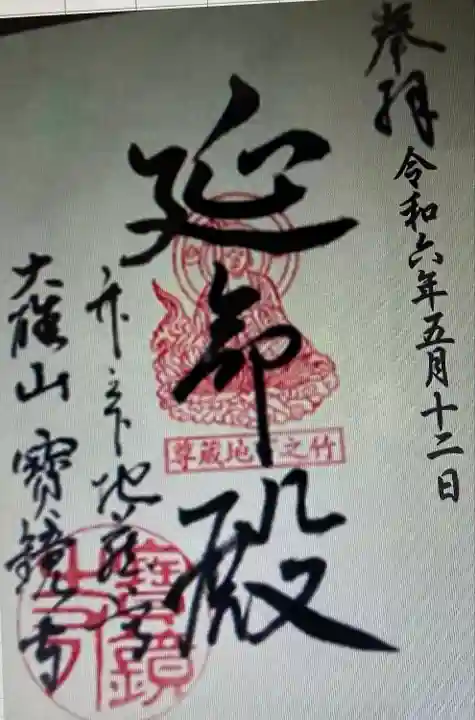 奉拝
令和六年五月十二日
延命殿
竹之下地蔵尊
竹之下地蔵尊
大雄山 寶鏡寺
寶鏡